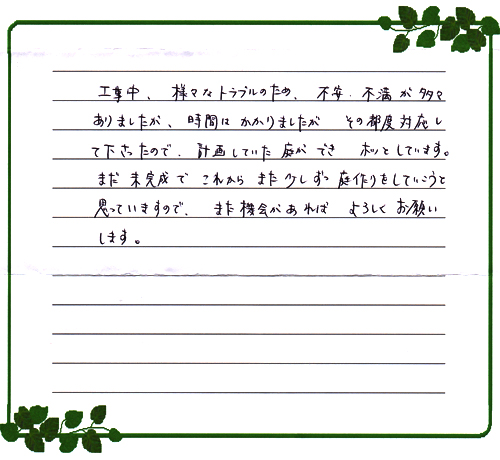 工事中、様々なトラブルのため、不安・不満が多々
ありましたが、時間はかかりましたが その都度対応し
て下さったので、計画していた庭ができ ホッとしています。
まだ未完成で これから また少しずつ庭作りをしていこうと
思っていますので、また機会があれば よろしくお願い
します。